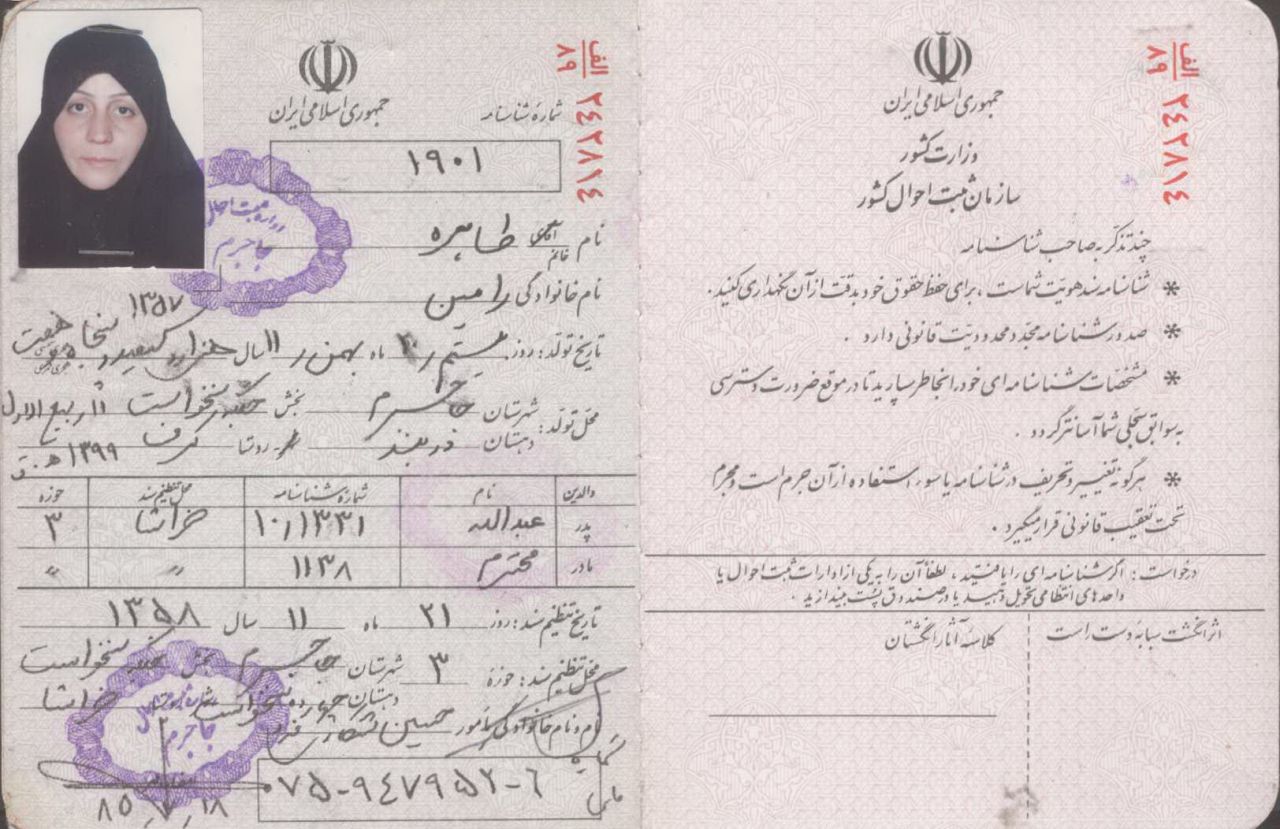 جمهوری اسلامی ایران
وزارت کشور
سازمان ثبت احوال کشور
الف
۸۹
۲۴۲۸۱۴
چند تذکر به صاحب شناسنامه
* شناسنامه سند هویت شماست ، برای حفظ حقوق خود بدقت از آن نگهداری کنید.
* صدور شناسنامه مجدد محدودیت قانونی دارد .
* مشخصات شناسنامه ای خود را بخاطر بسپارید تا در موقع ضرورت دسترسی
به سوابق سجلی شما آسانتر گردد .
* هرگونه تغییر و تحریف در شناسنامه یا سوء استفاده از آن جرم است و مجرم
تحت تعقیب قانونی قرار میگیرد .
درخواست : اگر شناسنامه ای را یافتید ، لطفاً آن را به یکی از ادارات ثبت احوال یا
واحدهای انتظامی تحویل دهید یا در صندوق پست بیندازید .
اثر انگشت سبابه دست راست
کلاسه آثار انگشتان
الف
۸۹
۲۴۲۸۱۴
جمهوری اسلامی ایران
شماره شناسنامه
۱۹۰۱
نام آقای خانم طاهره
نام خانوادگی رامین
۱۳۵۷
تاریخ تولد : روز ماه بهمن ۱۱ سال هزار و سیصد و پنجاه و هفت
محل تولد : شهرستان جاجرم بخش ربیع الاول
دهستان روستا ۱۳۹۹
والدین نام شماره شناسنامه محل تنظیم سند حوزه
پدر عبدالله ۱۰٫۱۳۳۱ خراشا ۳
مادر محترم ۱۱۳۸ " "
تاریخ تنظیم سند : روز ۲۱ ماه ۱۱ سال ۱۳۵۸
محل تنظیم سند : حوزه ۳ شهرستان جاجرم بخش
دهستان خراشا
نام و نام خانوادگی مأمور حسین
۰۷۵-۹۴۷۹۵۲-۶
اداره ثبت احوال
جاجرم
جاجرم